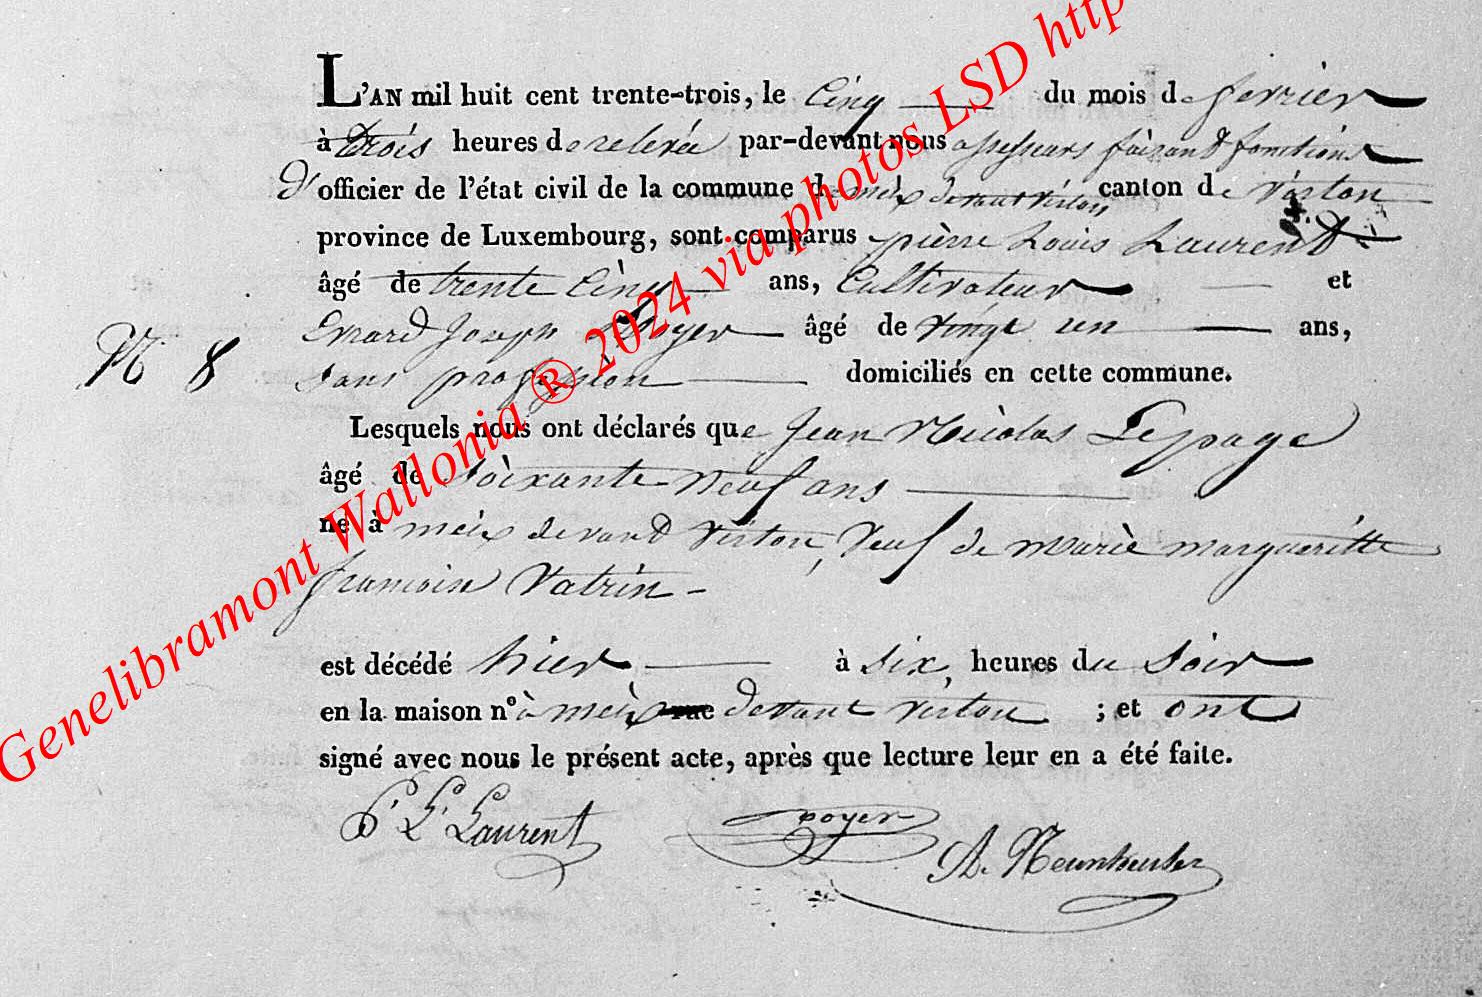 L'AN mil huit cent trente-trois, le Cinq du mois de fevrier
à trois heures de relevée par-devant nous assesseurs faisant fonctions
d'officier de l'état civil de la commune de meix devant virton canton de virton
province de Luxembourg, sont comparus pièrre Louis Laurent
âgé de trente Cinq ans, Cultivateur et
Evrard Joseph Poyer âgé de vingt un ans,
N 8 sans profession domiciliés en cette commune.
Lesquels nous ont déclarés que Jean Nicolas Lepage
âgé de soixante neuf ans
né à meix devand virton, veuf de marie margueritte
francoise Vatrin
est décédé hier à six heures du soir
en la maison n° à meix rue devant virton ; et ont
signé avec nous le présent acte, après que lecture leur en a été faite.
P. L. Laurent poyer
Genelibramont Wallonia ® 2024 via photos LSD http